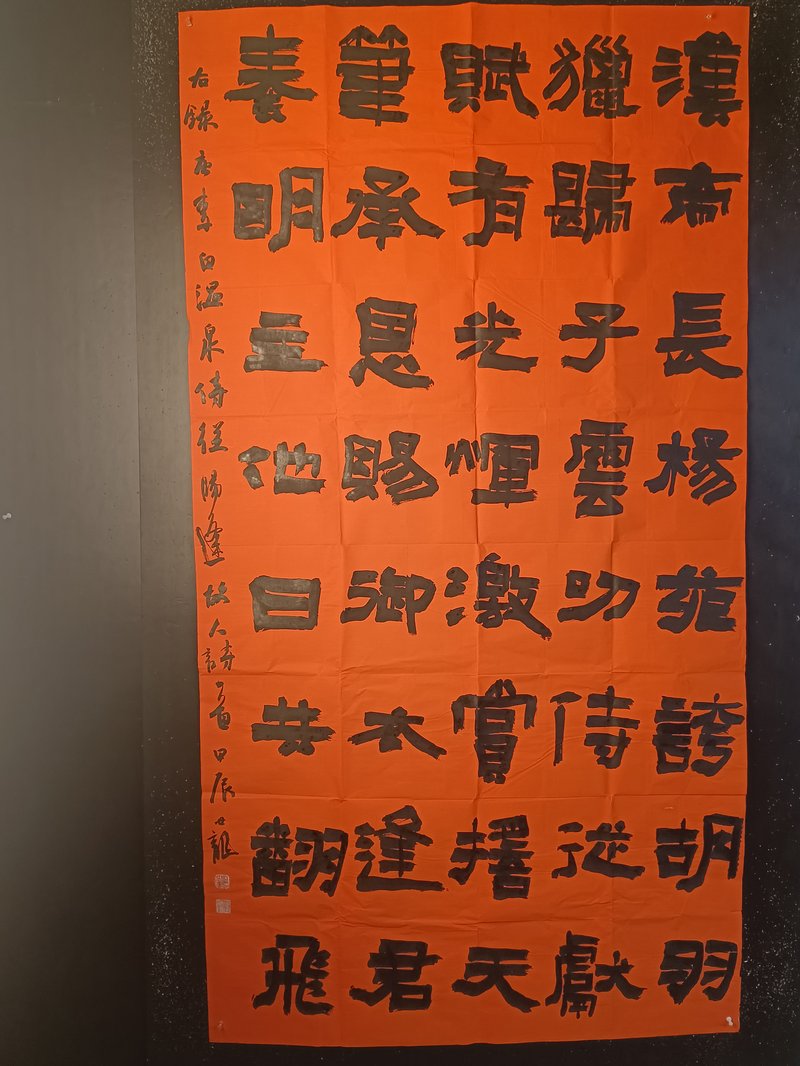 漢帝長楊苑誇胡羽
獵歸子雲叨侍從獻
賦有光煇激賞搖天
筆承恩賜御衣逢君
奏明主他日共翻飛
右錄唐李白温泉侍從歸逢故人詩一首甲辰世龍